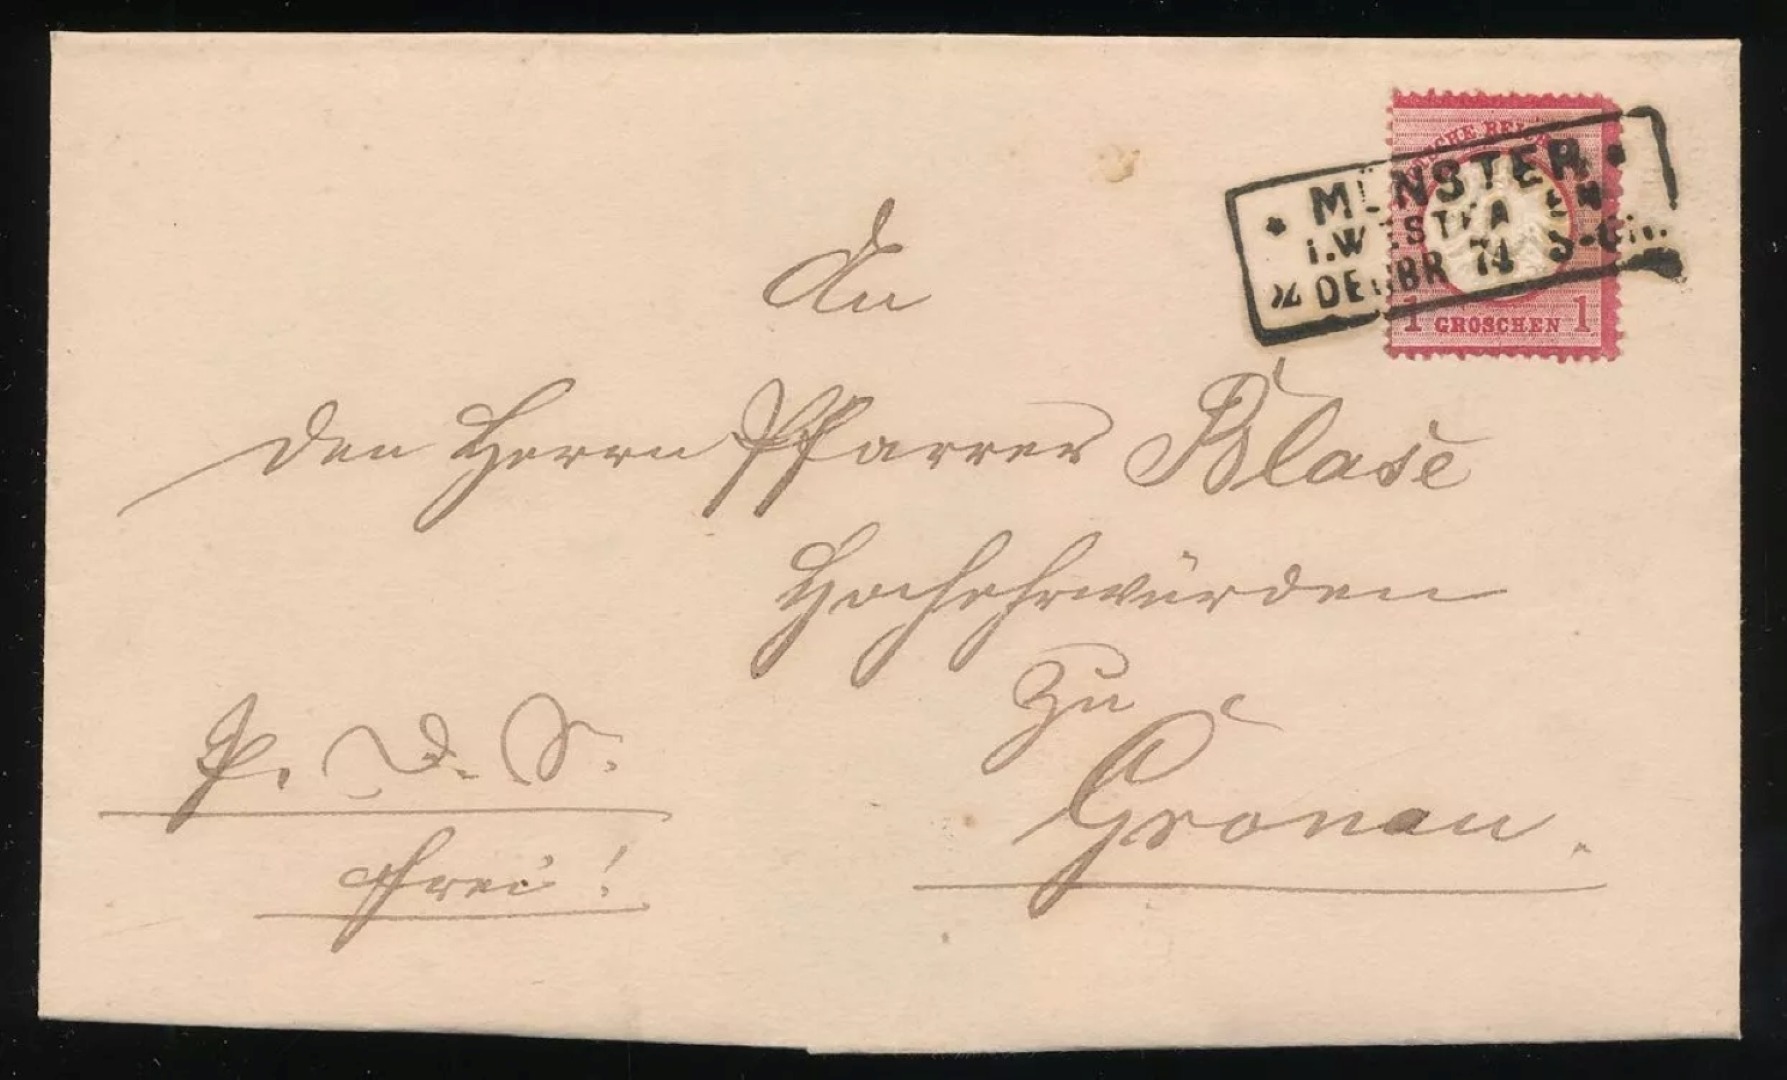 DEUTSCHE REICH
* MÜNSTER *
i. WESTFALEN
DECBR 74
1 GROSCHEN 1
An
den Herrn Pfarrer Blase
Hochehrwürden
zu
Gronau.
P. D. S.
frei!